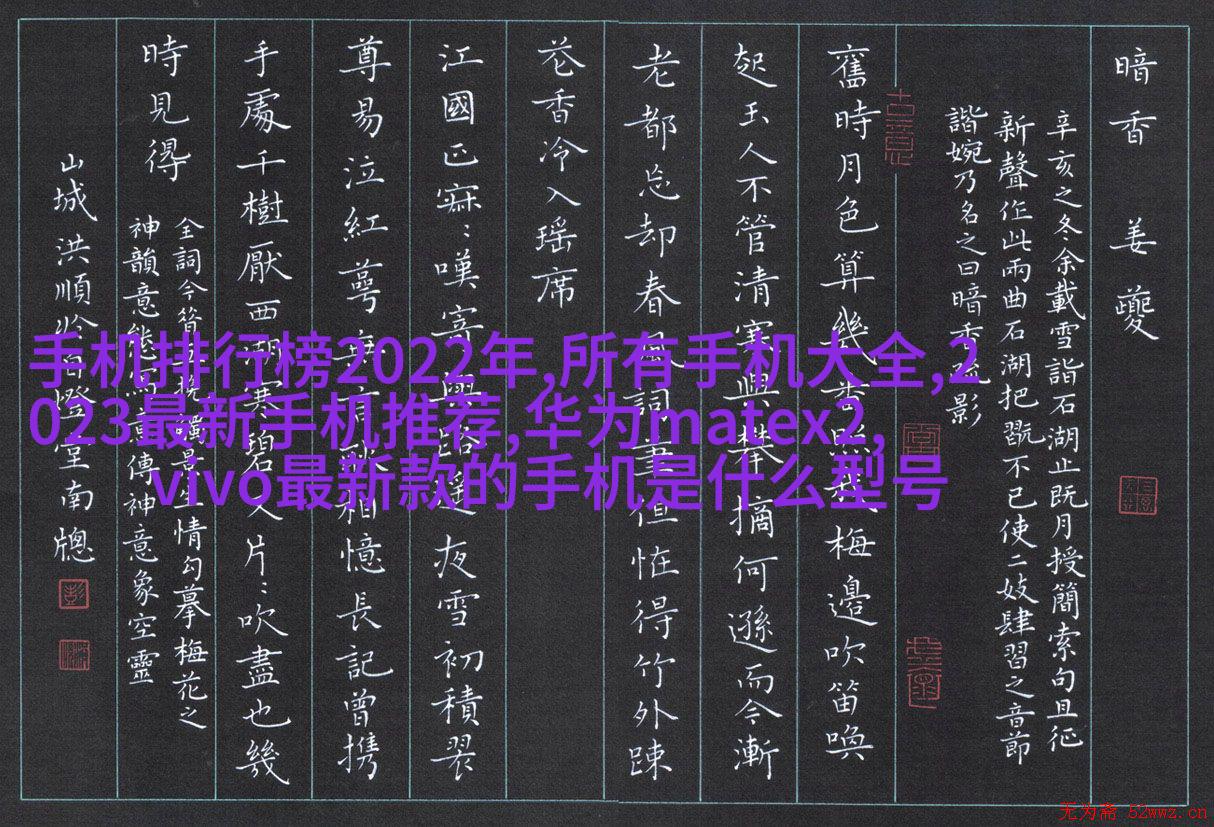 暗香 姜夔
辛亥之冬余載雪詣石湖止既月授簡索句且征
新聲作此兩曲石湖把翫不已使二妓肆習之音節
諧婉乃名之曰暗香疏影
古意
舊時月色算幾番照我梅邊吹笛喚
起玉人不管清寒與攀摘何遜而今漸
老都忘却春風詞筆但恠得竹外疎
花香冷入瑶席
江國正寂〻嘆寄與路遥夜雪初積翠
尊易泣紅萼無言耿相憶長記曾攜
手處千樹壓西湖寒碧又片〻吹盡也幾
時見得
全詞今昔 景生情勾摹梅花之
神韻意態 傳神意象空靈
山城洪順 堂南牕
手机排行榜2022年,所有手机大全,2
023最新手机推荐,华为matex2,
vivo最新款的手机是什么型号
无为斋 52wwz.cn